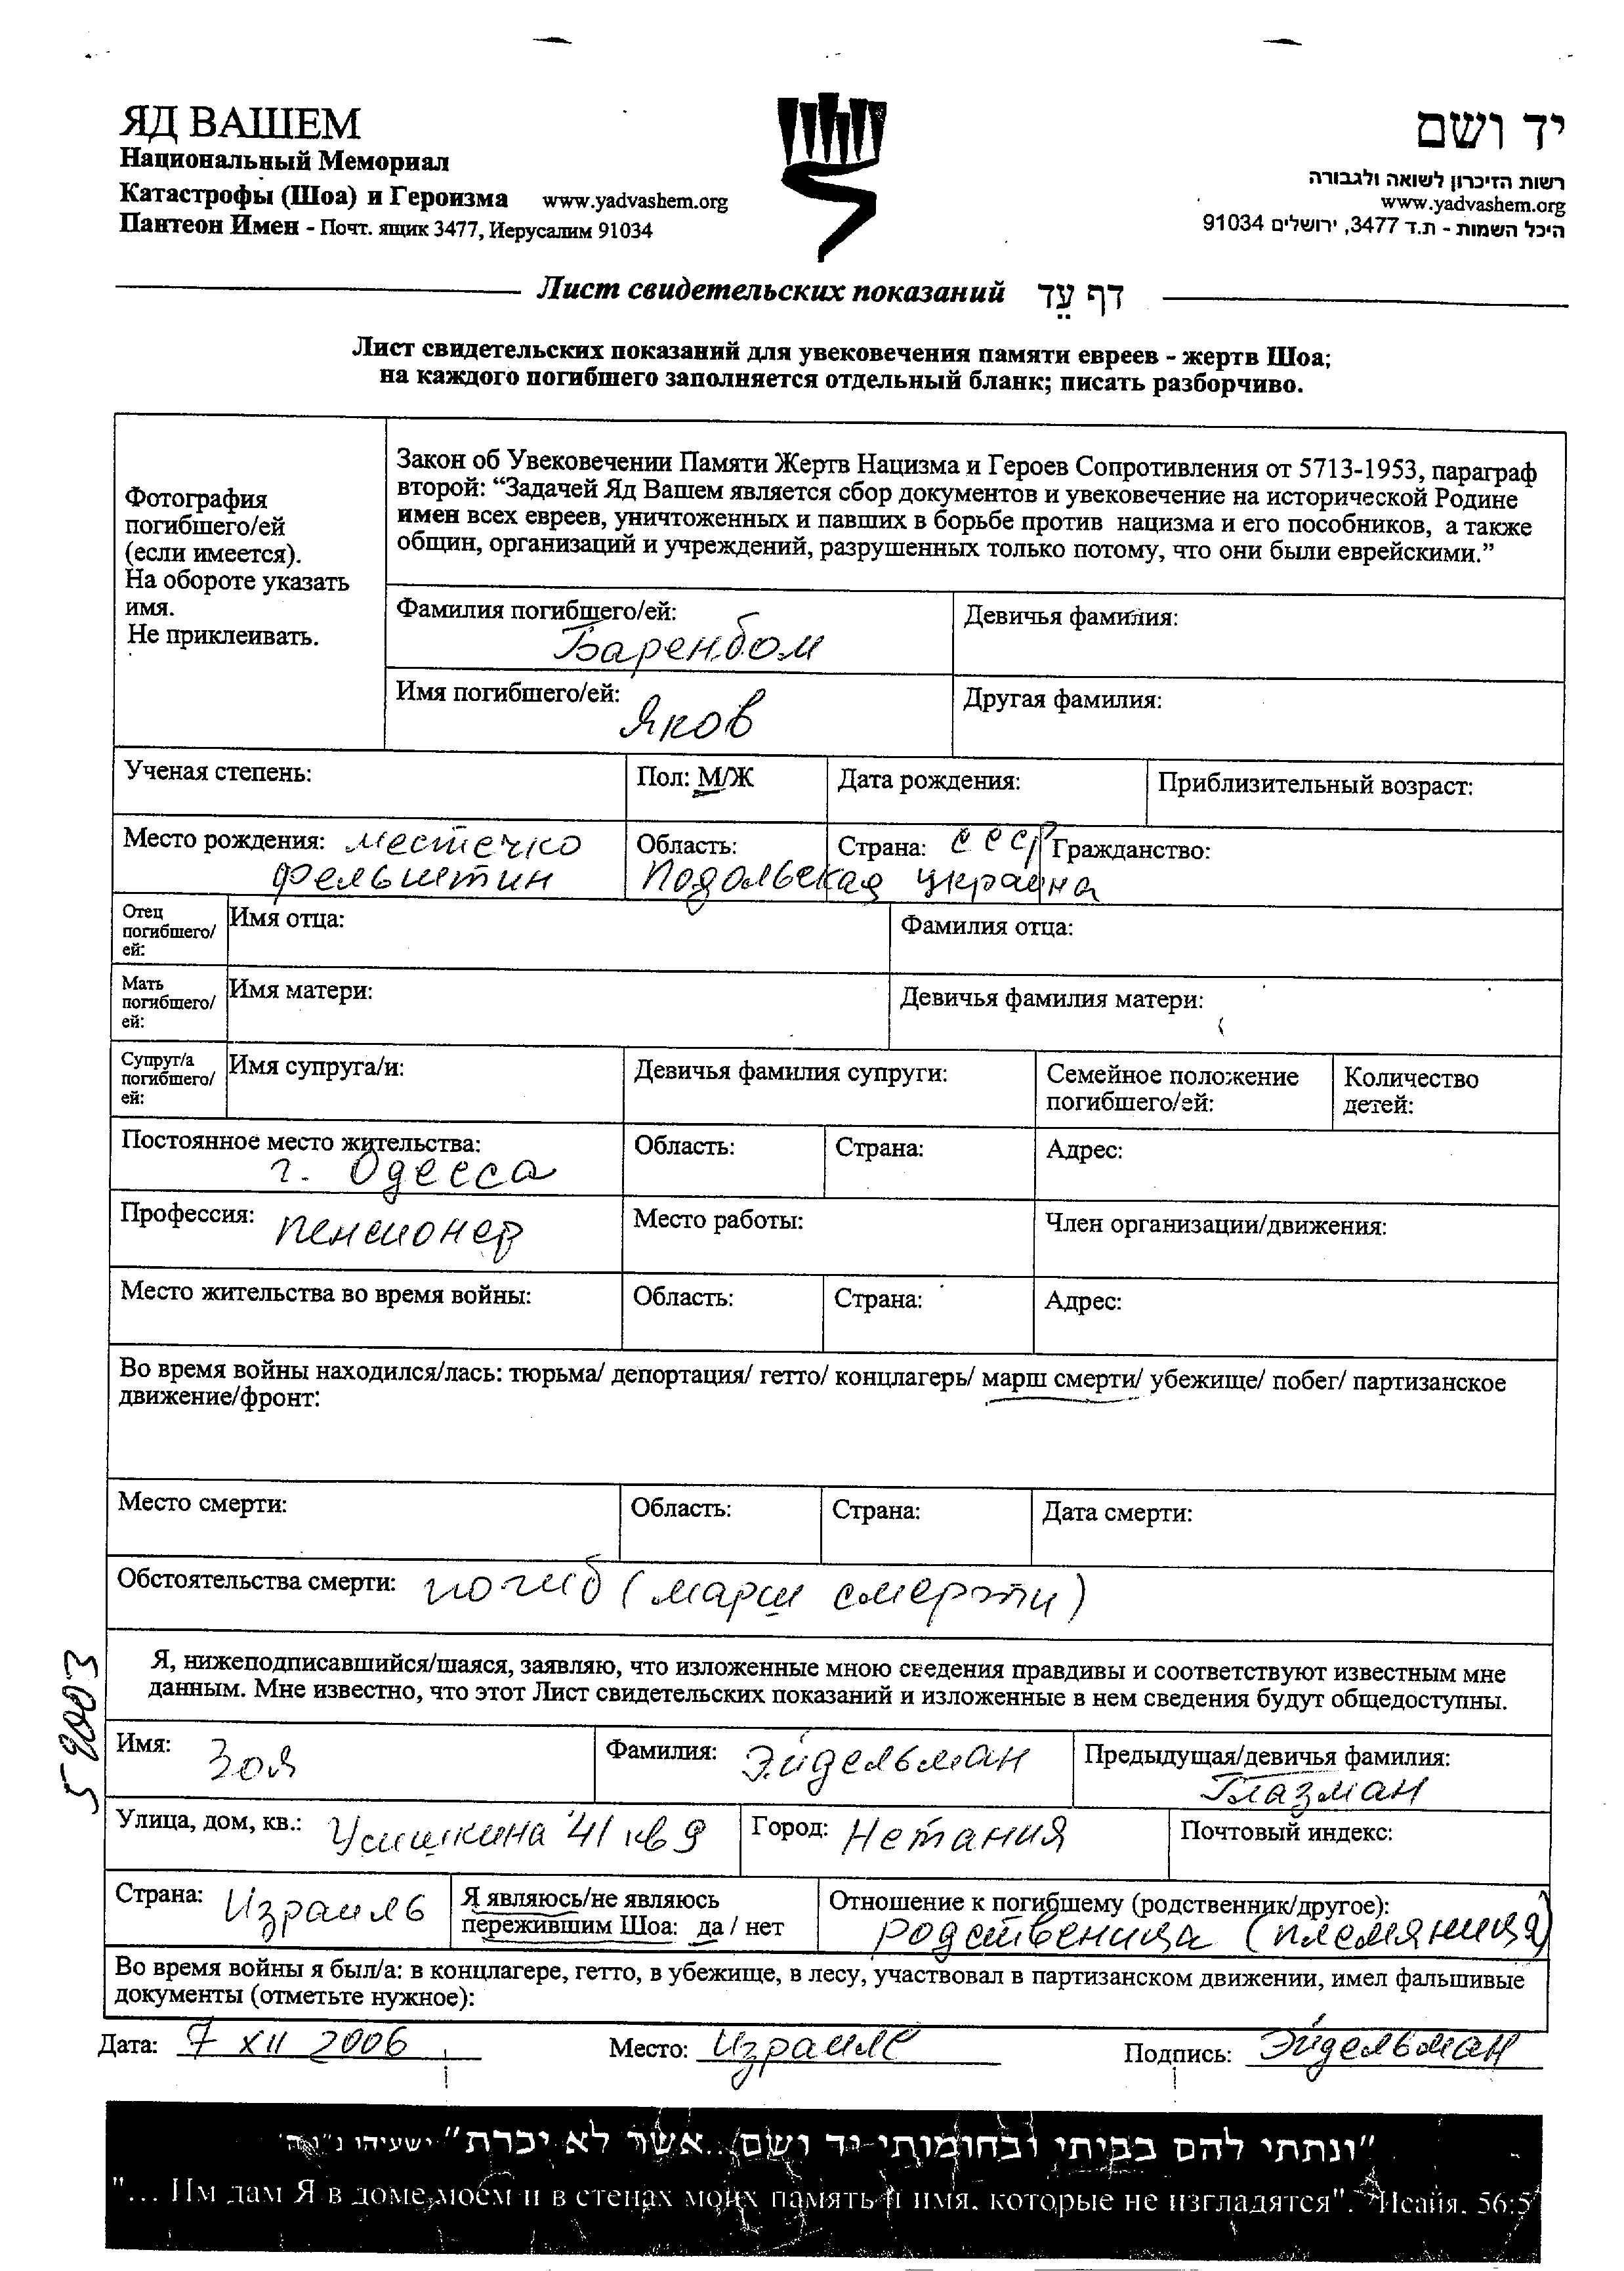 ЯД ВАШЕМ
Национальный Мемориал
Катастрофы (Шоа) и Героизма www.yadvashem.org
Пантеон Имен - Почт. ящик 3477, Иерусалим 91034
יד ושם
רשות הזיכרון לשואה ולגבורה
www.yadvashem.org
היכל השמות - ת.ד 3477, ירושלים 91034
Лист свидетельских показаний דף עֵד
Лист свидетельских показаний для увековечения памяти евреев - жертв Шоа;
на каждого погибшего заполняется отдельный бланк; писать разборчиво.
Фотография
погибшего/ей
(если имеется).
На обороте указать
имя.
Не приклеивать.
Закон об Увековечении Памяти Жертв Нацизма и Героев Сопротивления от 5713-1953, параграф
второй: “Задачей Яд Вашем является сбор документов и увековечение на исторической Родине
имен всех евреев, уничтоженных и павших в борьбе против нацизма и его пособников, а также
общин, организаций и учреждений, разрушенных только потому, что они были еврейскими.”
Фамилия погибшего/ей:
Баренбом
Девичья фамилия:
Имя погибшего/ей:
Яков
Другая фамилия:
Ученая степень:
Пол: М/Ж
Дата рождения:
Приблизительный возраст:
Место рождения: местечко
Фельштин
Область:
Подольская
Страна: СССР
украина
Гражданство:
Отец
погибшего/
ей:
Имя отца:
Фамилия отца:
Мать
погибшего/
ей:
Имя матери:
Девичья фамилия матери:
Супруг/а
погибшего/
ей:
Имя супруга/и:
Девичья фамилия супруги:
Семейное положение
погибшего/ей:
Количество
детей:
Постоянное место жительства:
г. Одесса
Область:
Страна:
Адрес:
Профессия: пенсионер
Место работы:
Член организации/движения:
Место жительства во время войны:
Область:
Страна:
Адрес:
Во время войны находился/лась: тюрьма/ депортация/ гетто/ концлагерь/ марш смерти/ убежище/ побег/ партизанское
движение/фронт:
Место смерти:
Область:
Страна:
Дата смерти:
Обстоятельства смерти: погиб (марш смерти)
Я, нижеподписавшийся/шаяся, заявляю, что изложенные мною сведения правдивы и соответствуют известным мне
данным. Мне известно, что этот Лист свидетельских показаний и изложенные в нем сведения будут общедоступны.
Имя: Зоя
Фамилия: Эйдельман
Предыдущая/девичья фамилия:
Глазман
Улица, дом, кв.: Усишкина 41 кв 9
Город: Нетания
Почтовый индекс:
Страна: Израиль
Я являюсь/не являюсь
пережившим Шоа: да / нет
Отношение к погибшему (родственник/другое):
родственица (племяница)
Во время войны я был/а: в концлагере, гетто, в убежище, в лесу, участвовал в партизанском движении, имел фальшивые
документы (отметьте нужное):
Дата: 7 XII 2006 Место: Израиль Подпись: Эйдельман
"ונתתי להם בביתי ובחומותי יד ושם...אשר לא יכרת" ישעיהו נ"ו ה'
"... Им дам Я в доме моем и в стенах моих память и имя, которые не изгладятся". Исайя. 56:5